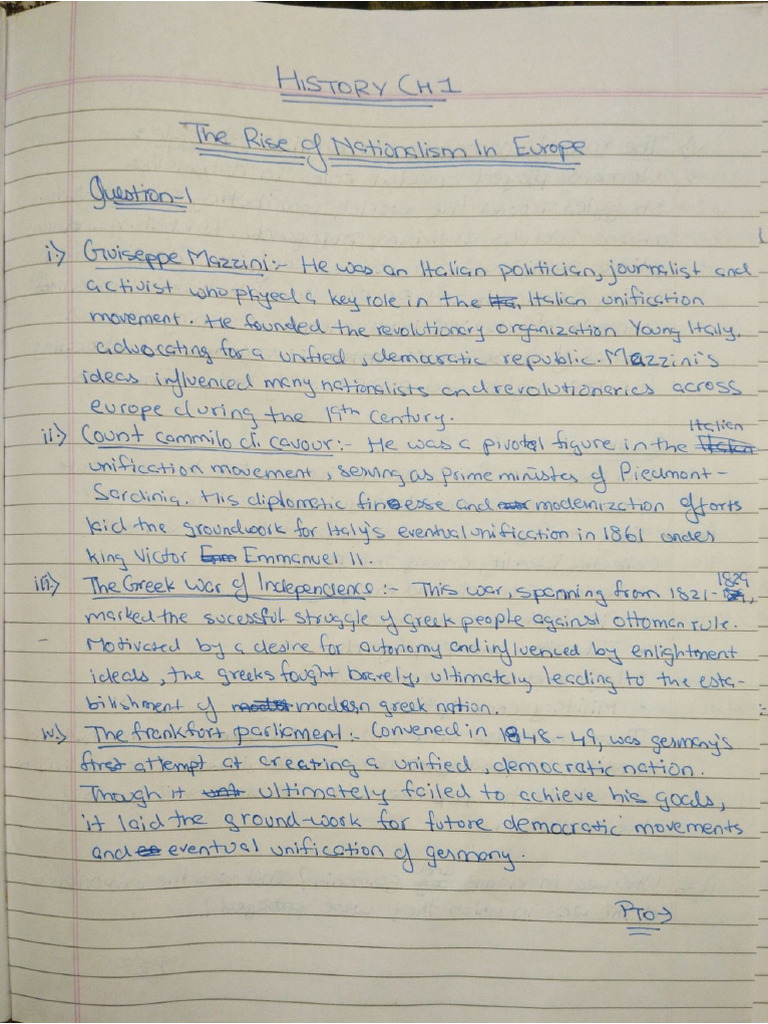 HISTORY CH 1
The Rise of Nationalism In Europe
Question-1
i:) Guiseppe Mazzini:- He was an Italian politician, journalist and
activist who played a key role in the Italian unification
movement. He founded the revolutionary organization Young Italy,
advocating for a unified, democratic republic. Mazzini's
ideas influenced many nationalists and revolutionaries across
europe during the 19th century.
ii:) Count cammilo di cavour:- He was a pivotal figure in the Italian
unification movement, serving as prime minister of Piedmont-
Sardinia. His diplomatic finesse and modernization efforts
laid the groundwork for Italy's eventual unification in 1861 under
king Victor Emmanuel II.
iii:) The Greek War of Independence:- This war, spanning from 1821-1829,
marked the sucessful struggle of greek people against ottoman rule.
Motivated by a desire for autonomy and influenced by enlightment
ideals, the greeks fought bravely, ultimately leading to the esta-
bilishment of modern greek nation.
iv:) The frankfort parliament:- Convened in 1848-49, was germany's
first attempt at creating a unified, democratic nation.
Though it ultimately failed to achieve his goals,
it laid the ground-work for future democratic movements
and eventual unification of germany.
PTO→